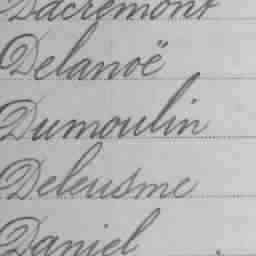 Sacremont
Delanoë
Dumoulin
Deleusme
Daniel